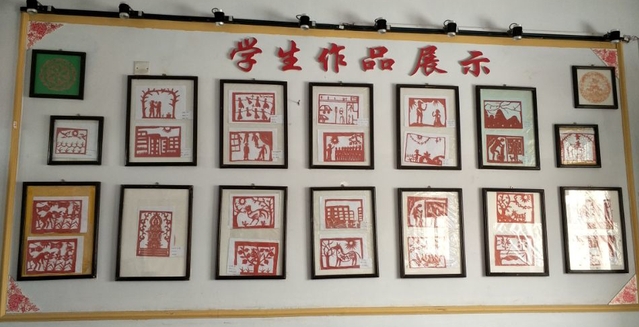 学生作品展示